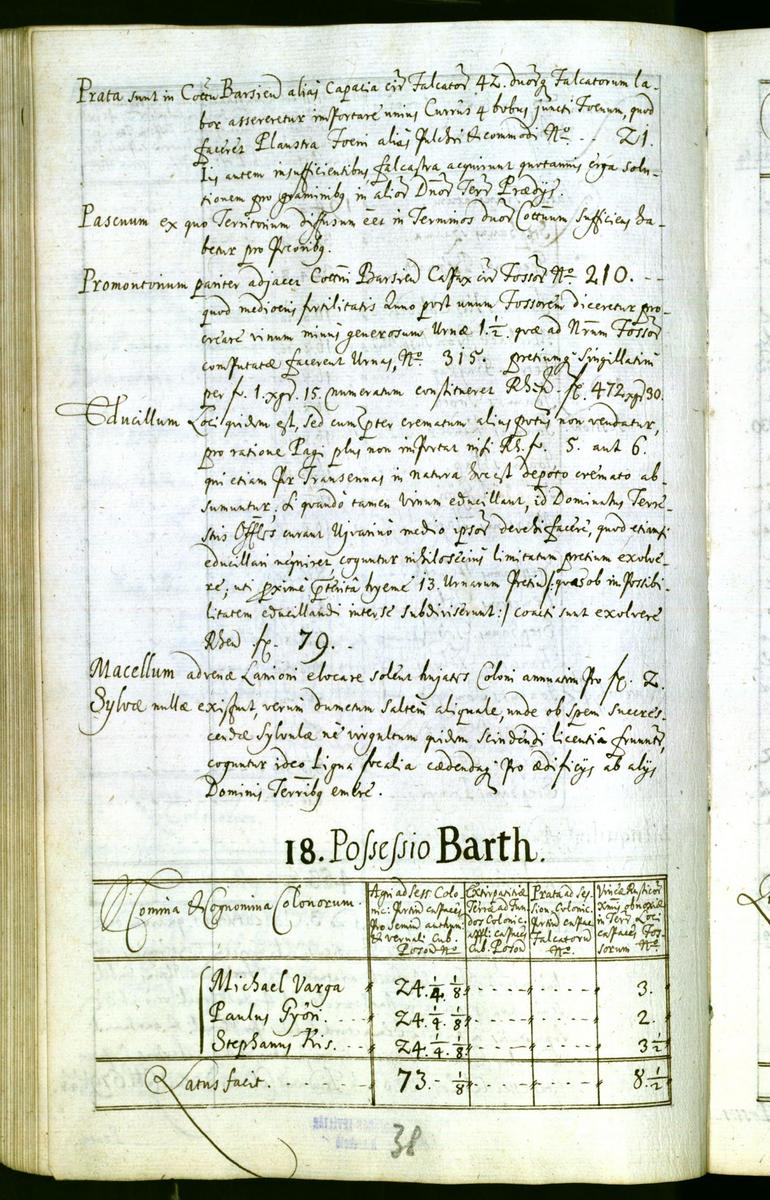 Prata sunt in Cottu Barsien alias Capacia cir Falcator 42. duorq Falcatorum la-
bor assereretur importare unius Currus 4 bobus juncti Foenum, quod
faceret Plaustra Foeni alias Pulchri & commodi No. - - 21.
Iis autem insufficientibus falcastra acquirunt quotannis erga solu-
tionem pro graminibq in alior Dnor Terr Praedijs.
Pascuum ex quo Territorium diffusum eet in Terminos duor Cottuum Sufficiens ha-
betur pro Pecoribq.
Promontorium pariter adjacet Cottui Barsien Capax cir Fossor No. 210. - -
quod mediocris fertilitatis Anno post unum Fossorem diceretur pro-
creare vinum minus generosum Urnae 1.½ quae ad Nrum Fossor
computatae facerent Urnas, No. 315. pretiumq Singillatim
per f. 1. xgr. 15. numeratum constitueret Rhen. fl. 472 xgr 30.
Educillum Loci quidem est, sed cum pter crematum alius potus non vendatur,
pro ratione Pagi plus non importat nisi Rh. f. 5. aut 6.
qui etiam per Transennas in natura hoc est depoto cremato ab-
sumuntur, & quando tamen vinum educillant, id Dominatus Terre-
stris Offles curant Ujvarino medio ipsor devehi facere, quod etiamsi
educillari nequiret, coguntur nihilosecius limitatum pretium exolve-
re, uti proxime pterita hyeme 13. Urnarum Pretiu /: quas ob impossibi-
litatem educillandi inter se subdiviserunt :/ coacti sunt exolvere
Rhen fl. 79. -
Macellum advenae Lanioni elocare solent hujates Coloni annuatim pro fl. 2.
Sylvae nullae existunt, verum dumetum saltem aliquale, unde ob spem succres-
cendae Sylvulae ne virgultum quidem scindendi licentia fruuntr,
coguntur ideo Ligna focalia caedendaq pro aedificijs ab alijs
Dominis Terribq emere.
18. Possessio Barth.
Nomina & Cognomina Colonorum.
Agri ad Sess. Colo-
nic. Pertin capaces
Pro Semin authum.
& vernali Cub.
Poson. No.
Extirpatitiae
Terrae ad Fun-
dos Colonic.
appli. capaces
Cub. Poson
Prata ad Ses-
sion. Colonic.
Pertin capac
Falcatoru
No.
Vineae Rusticor
Xmis obnoxiae
in Terr Loci
capaces Fos-
sorum No.
Michael Varga 24. ¼. ⅛ 3.
Paulus Győri. 24. ¼. ⅛ 2.
Stephanus Kis. 24. ¼. ⅛ 3 ½
Latus facit. 73. - ⅛ 8. ½
38